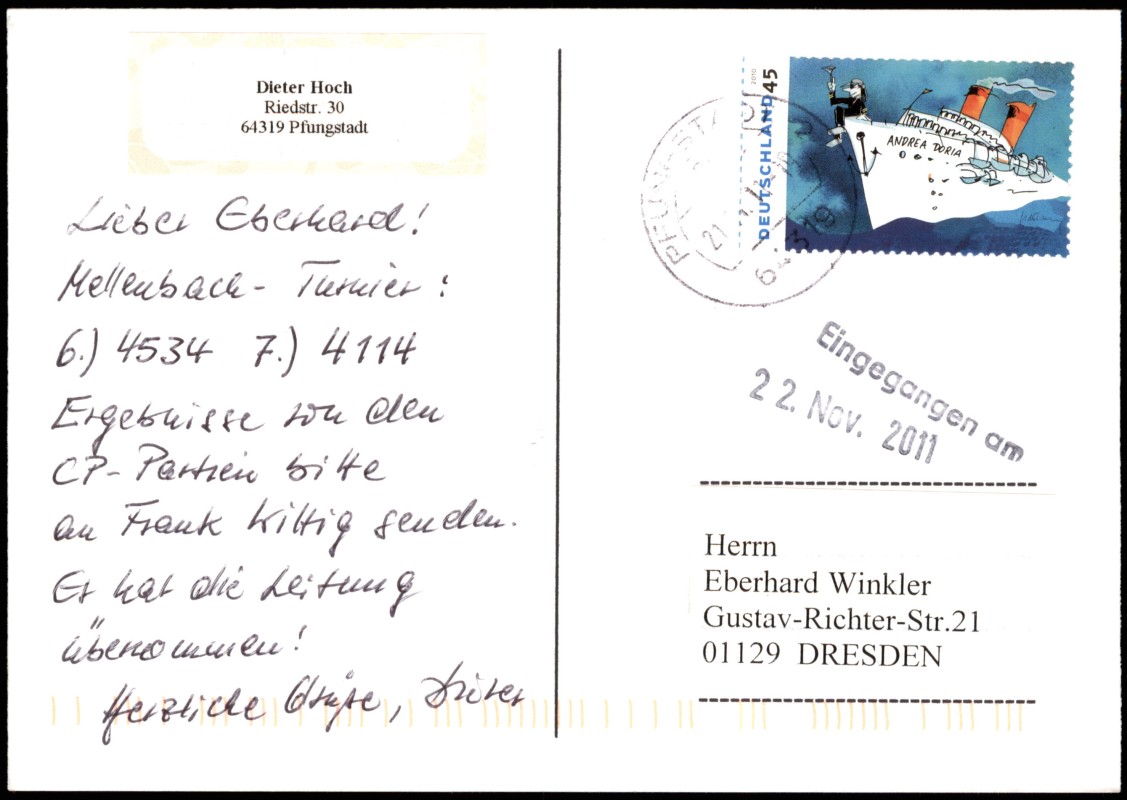 Dieter Hoch
Riedstr. 30
64319 Pfungstadt
Lieber Eberhard!
Mellenbach- Turnier:
6.) 4534 7.) 4114
Ergebnisse von den
CP-Partien bitte
an Frank Wittig senden.
Er hat die Leitung
übernommen!
Herzliche Grüße, Dieter
DEUTSCHLAND 45
2010
ANDREA DORIA
64319
21
Eingegangen am
22. Nov. 2011
Herrn
Eberhard Winkler
Gustav-Richter-Str.21
01129 DRESDEN